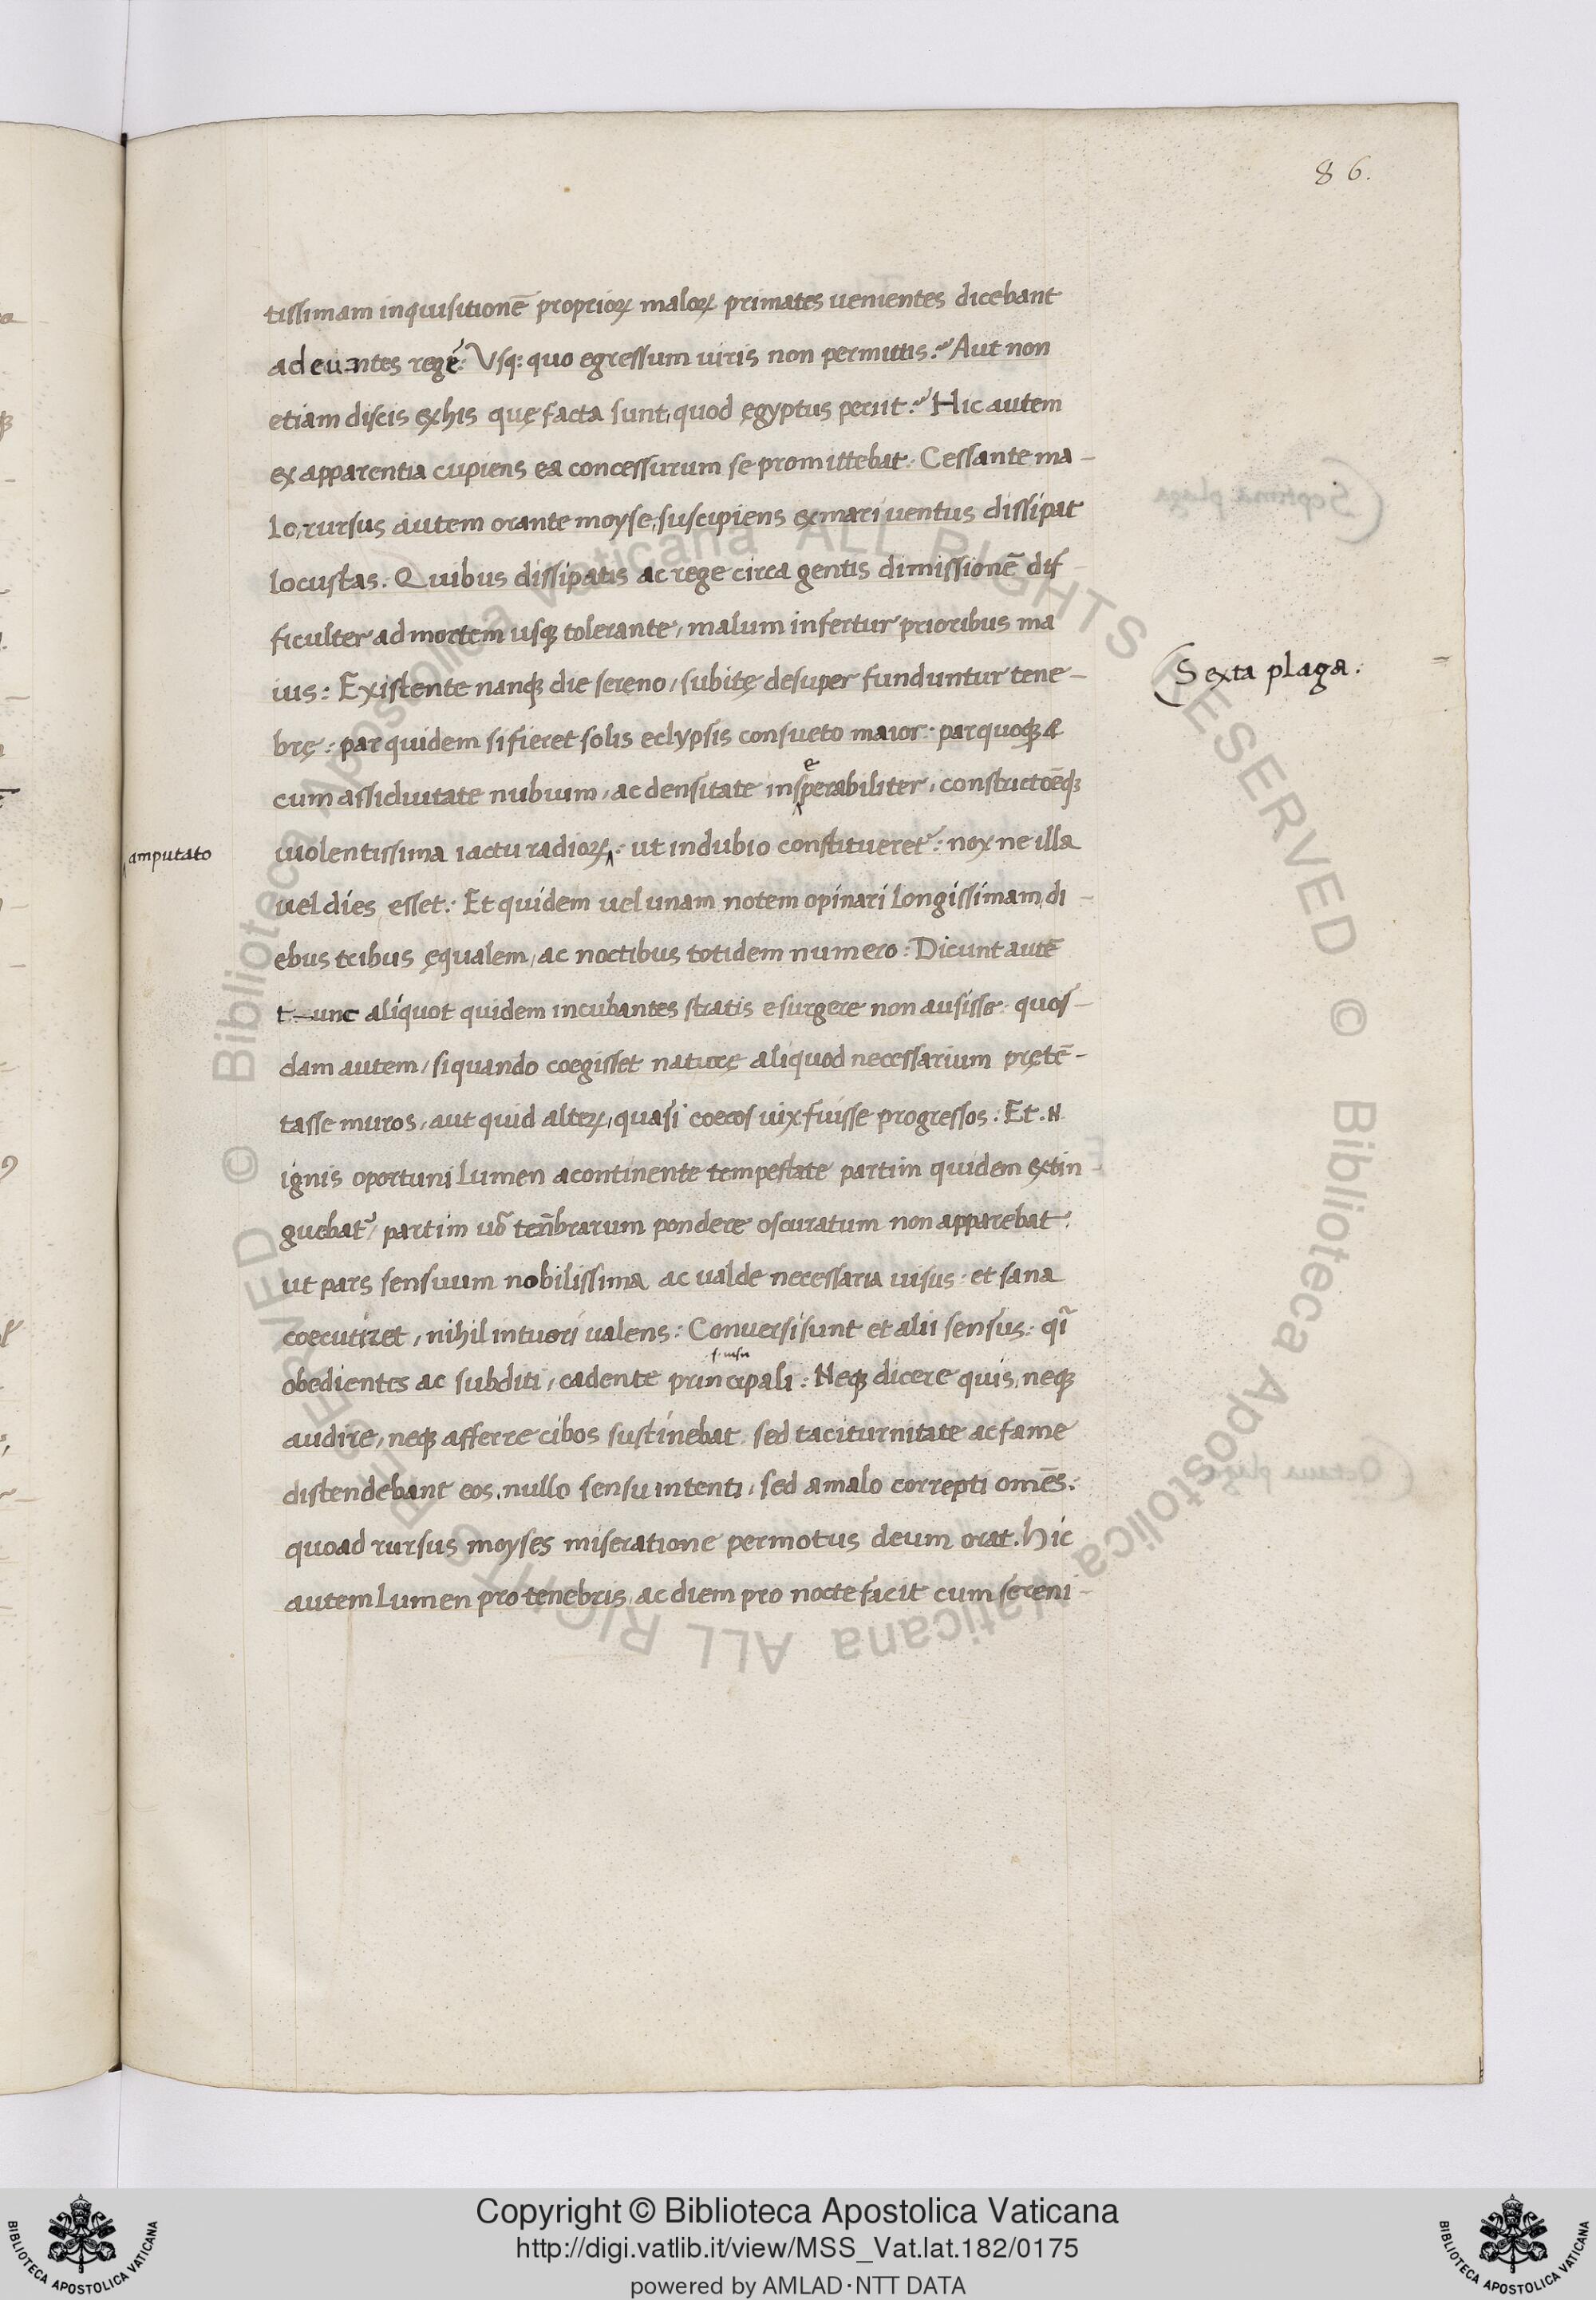 86.
tissimam inquisitionē proprioꝝ maloꝝ primates uenientes dicebant
adeuntes regē: Vsq: quo egressum uiris non permittis? Aut non
etiam discis ex his quę facta sunt, quod ęgyptus periit? Hic autem
ex apparentia cupiens ea concessurum se promittebat. Cessante ma-
lo, rursus autem orante moyse, suscipiens ex mari uentus dissipat
locustas. Quibus dissipatis ac rege circa gentis dimissionē dif
ficulter ad mortem usqꝫ tolerante, malum infertur prioribus ma
Sexta plaga.
ius: Existente nanqꝫ die sereno, subitę desuper funduntur tene-
brę: par quidem si fieret solis eclypsis consueto maior: par quoqꝫ &
cum assiduitate nubium, ac densitate inseperabiliter, constrictōeqꝫ
amputato
uiolentissima iactu radioꝝ: ut in dubio constitueret᷑: nox ne illa
uel dies esset: Et quidem uel unam notem opinari longissimam, di-
ebus tribus ęqualem, ac noctibus totidem numero: Dicunt autē
t—unc aliquot quidem incubantes stratis esurgere non ausisse: quos-
dam autem, siquando coegisset naturę aliquod necessarium pretē-
tasse muros, aut quid alteꝝ, quasi coecos uix fuisse progressos: Et .N.
ignis oportuni lumen a continente tempestate partim quidem extin-
guebat᷑, partim uō ten̄brarum pondere oscuratum non apparebat:
ut pars sensuum nobilissima ac ualde necessaria uisus: et sana
coecutiret, nihil intueri ualens: Conuersi sunt et alii sensus: qı̄
obedientes ac subditi, cadente principali: Neqꝫ dicere quis, neqꝫ
audire, neqꝫ afferre cibos sustinebat, sed taciturnitate ac fame
distendebant eos, nullo sensu intenti, sed a malo correpti omēs:
quoad rursus moyses miseratione permotus deum orat. Hic
autem lumen pro tenebris, ac diem pro nocte facit cum sereni-
© Biblioteca Apostolica Vaticana ALL RIGHTS RESERVED © Biblioteca Apostolica Vaticana ALL RIGHTS RESERVED
BIBLIOTECA APOSTOLICA VATICANA
Copyright © Biblioteca Apostolica Vaticana
http://digi.vatlib.it/view/MSS_Vat.lat.182/0175
powered by AMLAD·NTT DATA
BIBLIOTECA APOSTOLICA VATICANA